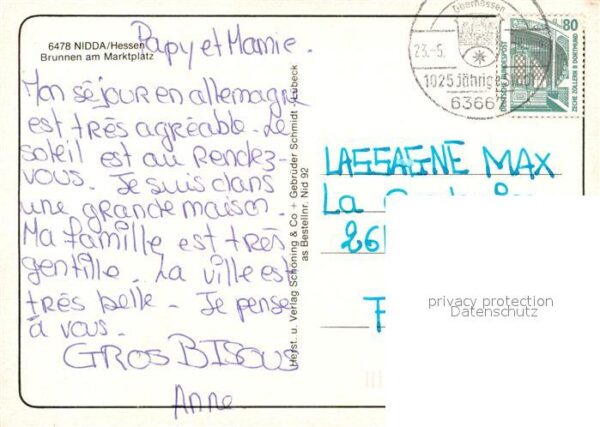 6478 NIDDA/Hessen
Brunnen am Marktplatz
Papy et Mamie.
Mon séjour en allemagne
est très agréable. Le
soleil est au rendez-
vous. Je suis dans
une grande maison.
Ma famille est très
gentille. La ville est
très belle. Je pense
à vous.
GROS BISOUS
Anne.
Herst. u. Verlag Schöning & Co + Gebrüder Schmidt · Lübeck
as Bestellnr. Nid 92
23.-5.
1025jährige
6366
80
DEUTSCHE BUNDESPOST
ZECHE ZOLLERN II DORTMUND
LASSAGNE MAX
La
26
F
privacy protection
Datenschutz